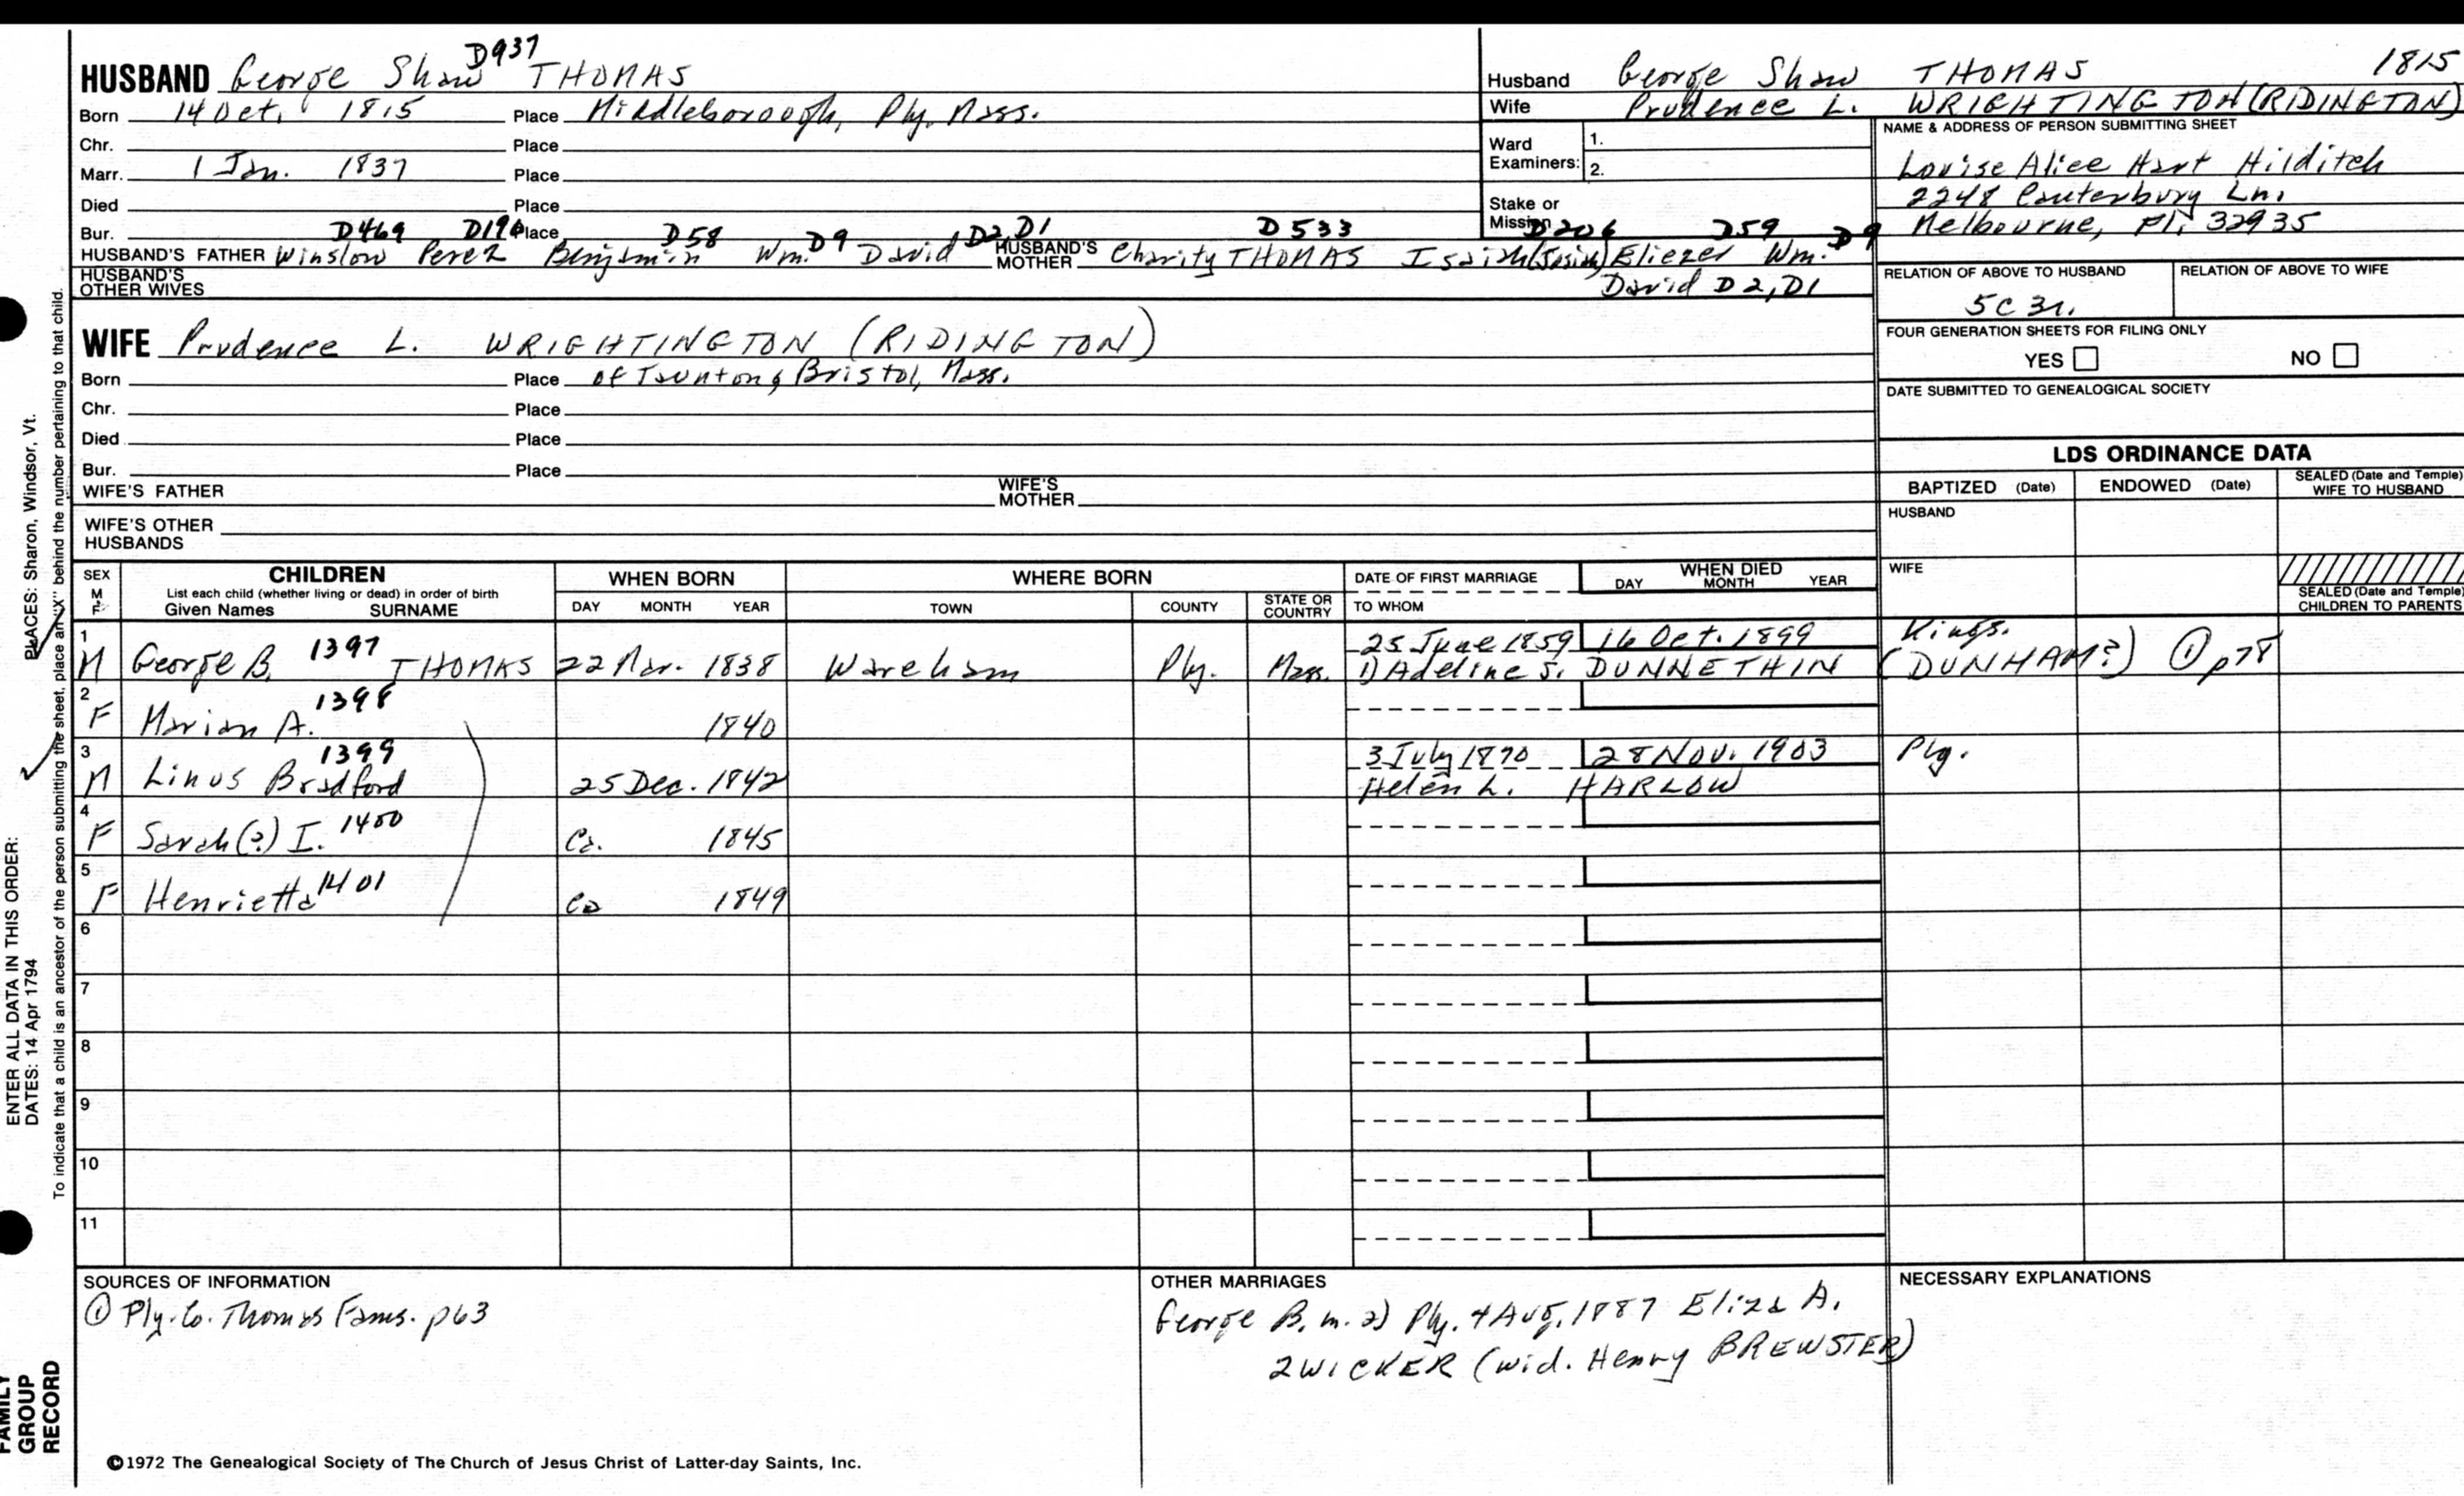 HUSBAND George Shaw D937 THOMAS
Born 14 Oct. 1815 Place Middleborough, Ply. Mass.
Chr. Place
Marr. 1 Jan. 1837 Place
Died Place
Bur. D469 D190 Place D58 D9 D2, D1 D533 D206 D59 D9
HUSBAND'S FATHER Winslow Perez Benjamin Wm. David HUSBAND'S MOTHER Charity THOMAS Isaiah (Josiah) Eliezer Wm.
HUSBAND'S OTHER WIVES David D2, D1
WIFE Prudence L. WRIGHTINGTON (RIDINGTON)
Born Place of Taunton, Bristol, Mass.
Chr. Place
Died Place
Bur. Place
WIFE'S FATHER WIFE'S MOTHER
WIFE'S OTHER HUSBANDS
Husband George Shaw THOMAS 1815
Wife Prudence L. WRIGHTINGTON (RIDINGTON)
Ward Examiners: 1.
2.
Stake or Mission
NAME & ADDRESS OF PERSON SUBMITTING SHEET
Louise Alice Hart Hilditch
2248 Canterbury Ln.
Melbourne, Fl. 32935
RELATION OF ABOVE TO HUSBAND RELATION OF ABOVE TO WIFE
5C 3r.
FOUR GENERATION SHEETS FOR FILING ONLY
YES NO
DATE SUBMITTED TO GENEALOGICAL SOCIETY
LDS ORDINANCE DATA
BAPTIZED (Date) ENDOWED (Date) SEALED (Date and Temple) WIFE TO HUSBAND
HUSBAND
WIFE
SEALED (Date and Temple) CHILDREN TO PARENTS
SEX M F CHILDREN WHEN BORN WHERE BORN DATE OF FIRST MARRIAGE WHEN DIED
List each child (whether living or dead) in order of birth DAY MONTH YEAR
Given Names SURNAME DAY MONTH YEAR TOWN COUNTY STATE OR COUNTRY TO WHOM
1 25 June 1859 16 Oct. 1899 Kings.
M George B. 1397 THOMAS 22 Mar. 1838 Wareham Ply. Mass. 1) Adeline S. DUNNETHIN (DUNHAM?) ① p78
2
F Marian A. 1398 1840
3 3 July 1870 28 Nov. 1903 Ply.
M Linus Bradford 1399 25 Dec. 1842 Helen L. HARLOW
4
F Sarah (?) I. 1400 Ca. 1845
5
F Henrietta 1401 Ca 1849
6
7
8
9
10
11
SOURCES OF INFORMATION
① Ply. Co. Thomas Fams. p63
OTHER MARRIAGES
George B. m. 2) Ply. 4 Aug. 1887 Eliza A.
ZWICKER (wid. Henry BREWSTER)
NECESSARY EXPLANATIONS
©1972 The Genealogical Society of The Church of Jesus Christ of Latter-day Saints, Inc.
ENTER ALL DATA IN THIS ORDER:
DATES: 14 Apr 1794
PLACES: Sharon, Windsor, Vt.
To indicate that a child is an ancestor of the person submitting the sheet, place an "X" behind the number pertaining to that child.
FAMILY
GROUP
RECORD